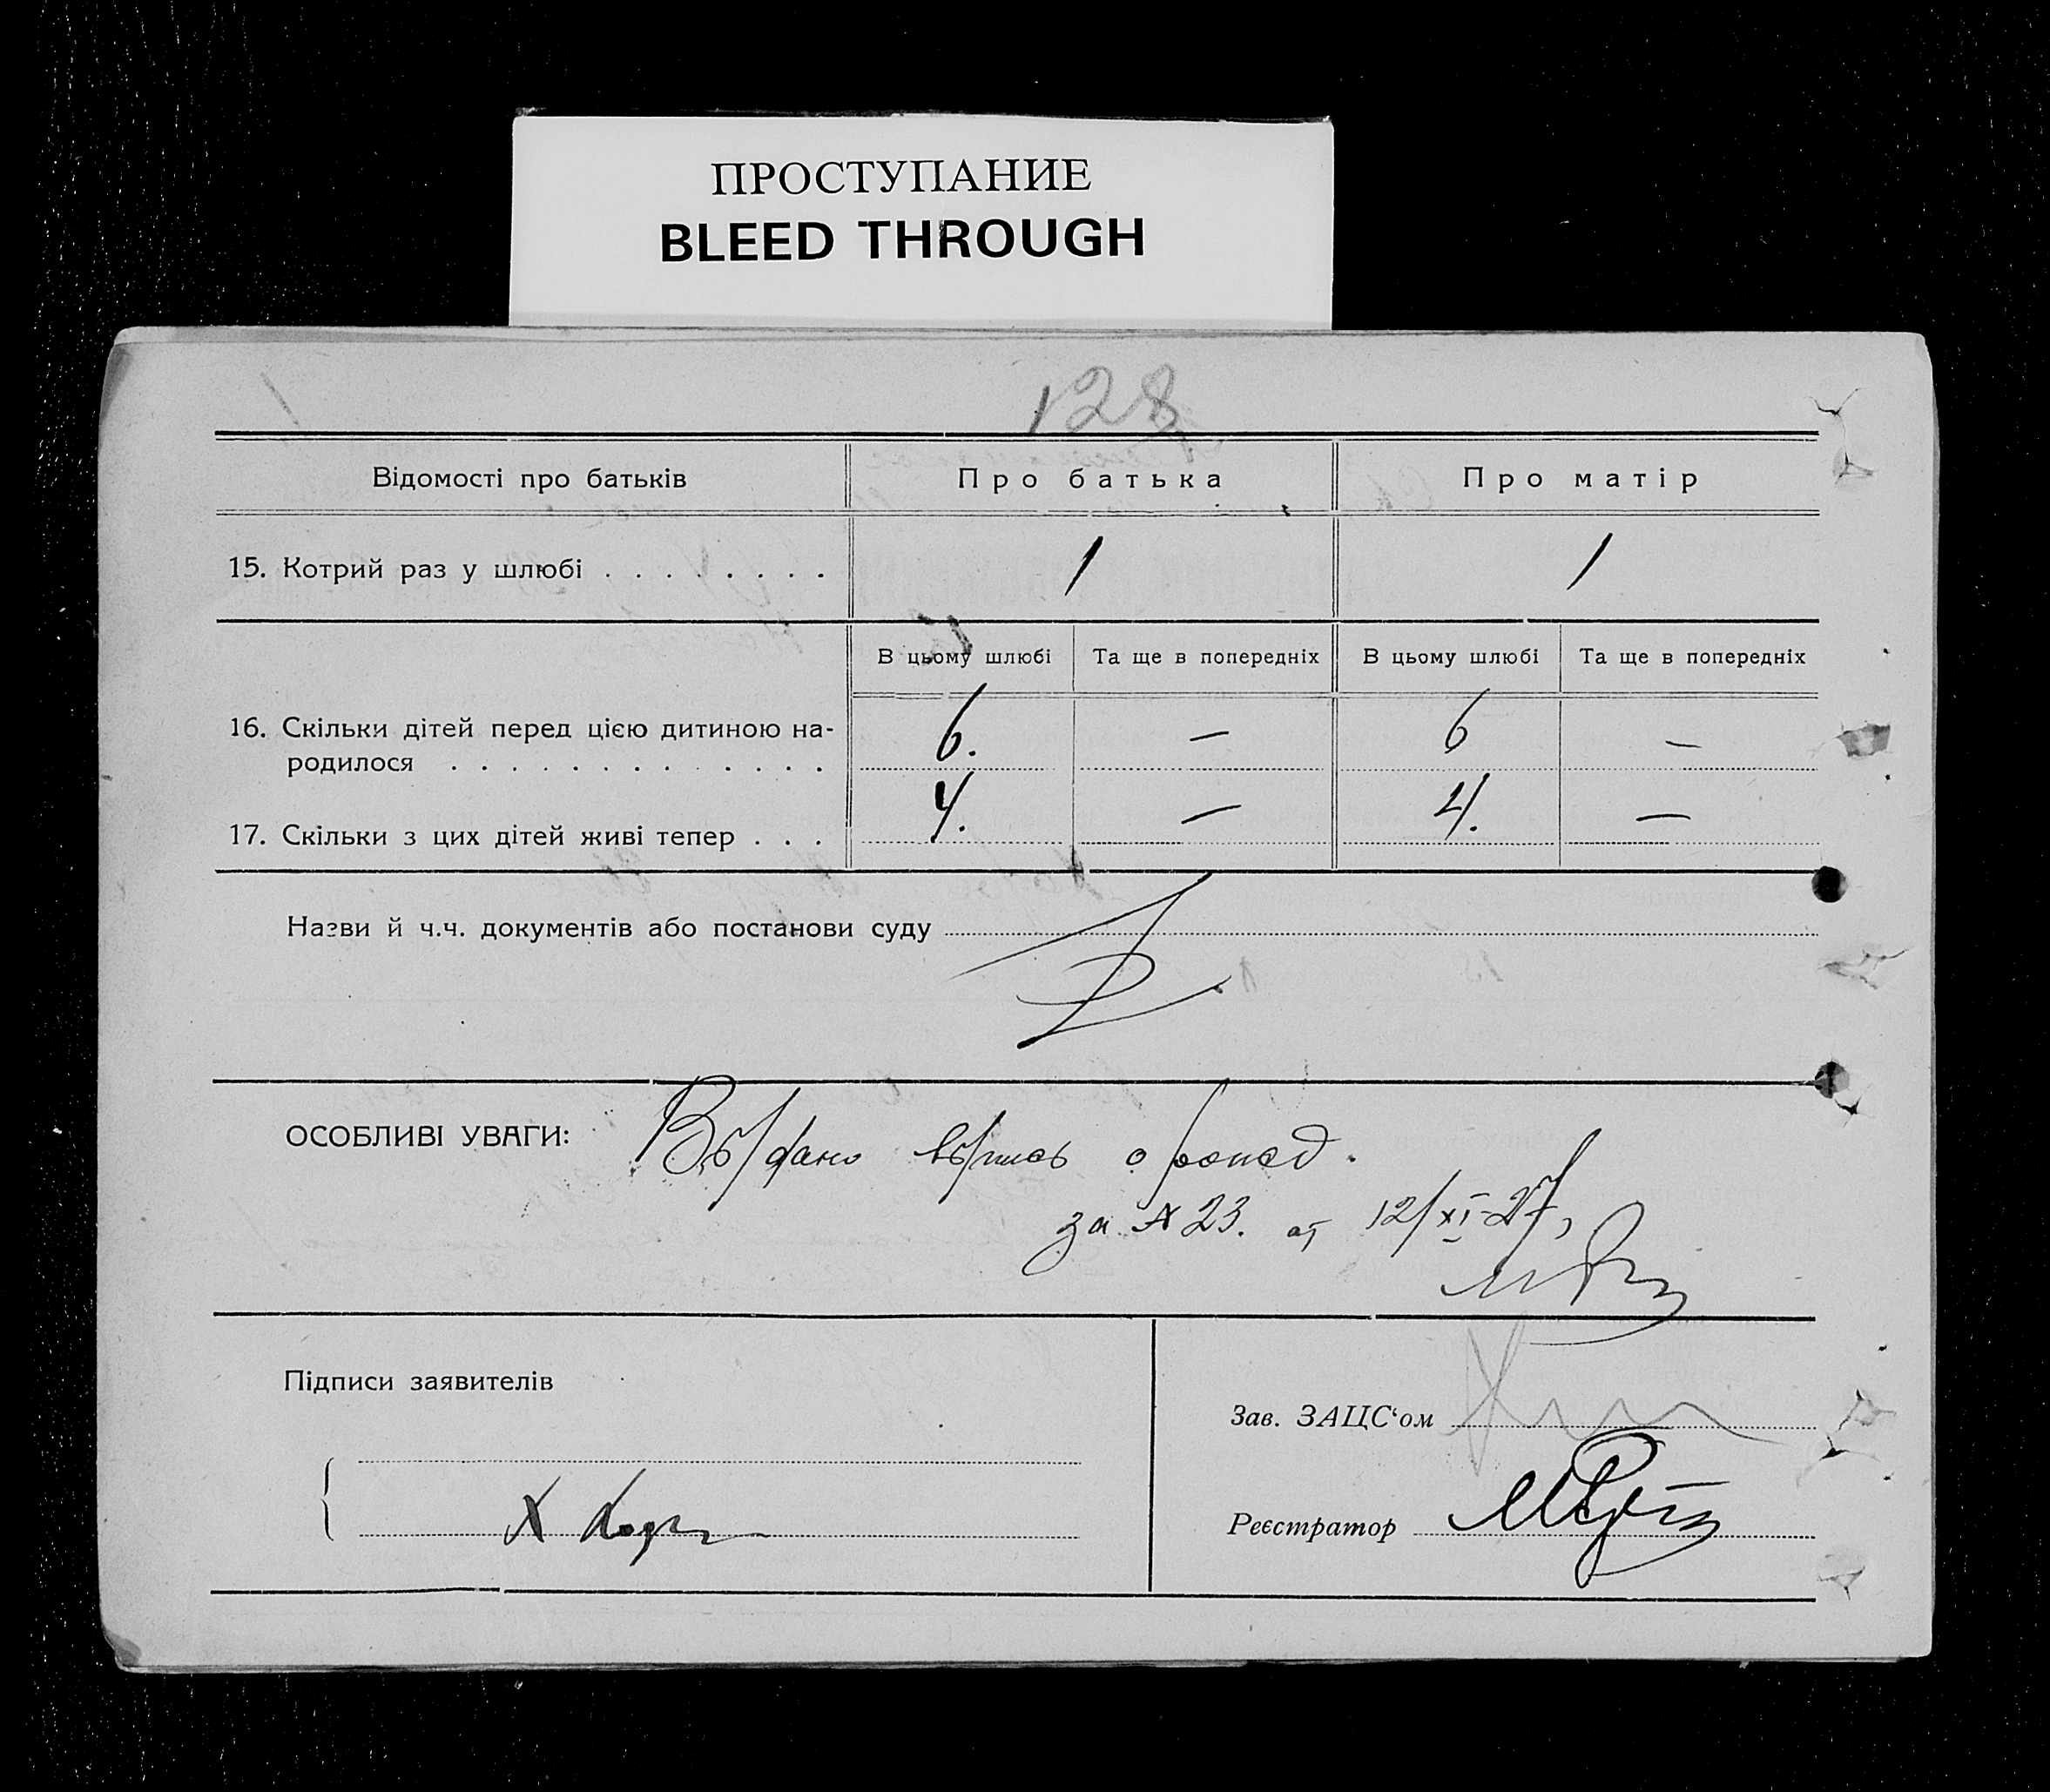 ПРОСТУПАНИЕ
BLEED THROUGH
128
Відомості про батьків Про батька Про матір
15. Котрий раз у шлюбі . . . . . . . . 1 1
В цьому шлюбі Та ще в попередніх В цьому шлюбі Та ще в попередніх
16. Скільки дітей перед цією дитиною на-
родилося . . . . . . . . . . . . . 6. — 6 —
17. Скільки з цих дітей живі тепер . . . 4. — 4. —
Назви й ч.ч. документів або постанови суду
ОСОБЛИВІ УВАГИ: Выдано выпись о рожд.
за № 23. от 12/XI-27,
Підписи заявителів
Зав. ЗАЦС‘ом
Х
Реєстратор